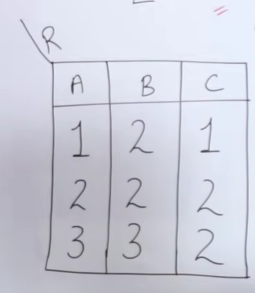 R
A B C
1 2 1
2 2 2
3 3 2